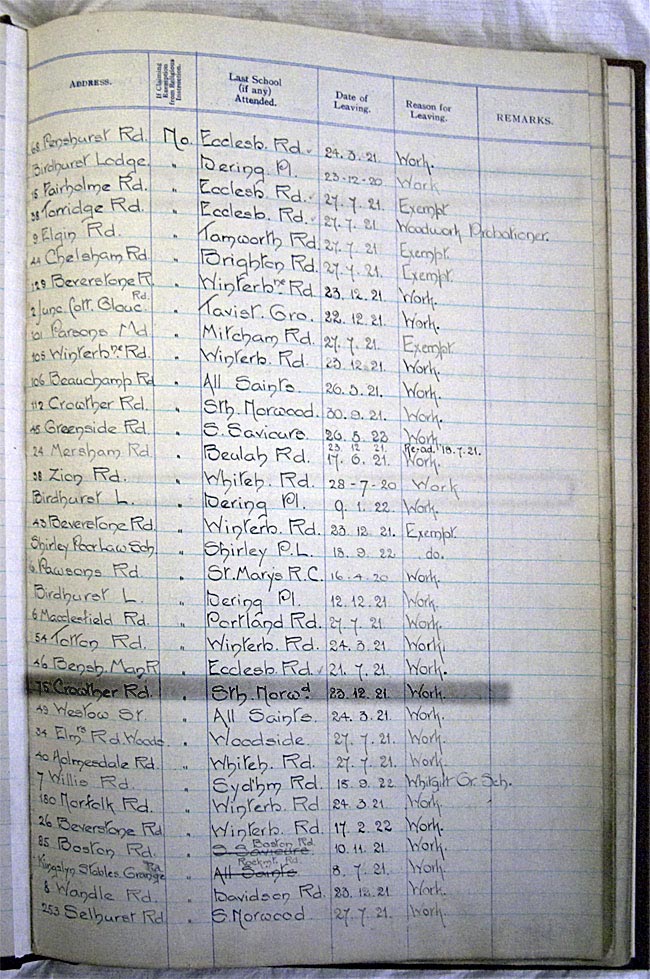 ADDRESS. If Claiming Exemption from Religious Instruction. Last School (if any) Attended. Date of Leaving. Reason for Leaving. REMARKS.
68 Penshurst Rd. No. Ecclesb. Rd. 24.3.21. Work.
Birdhurst Lodge. " Dering Pl. 23-12-20 Work
15 Fairholme Rd. " Ecclesb. Rd. 27.7.21. Exempt
38 Torridge Rd. " Ecclesb. Rd. 27.7.21. Woodwork Probationer.
9 Elgin Rd. " Tamworth Rd. 27.7.21 Exempt.
44 Chelsham Rd. " Brighton Rd. 27.7.21. Exempt.
129 Beverstone R. " Winterbne Rd 23.12.21. Work.
2 Junc. Cott. Glouc. Rd. " Tavist. Gro. 22.12.21. Work.
101 Parsons Md. " Mitcham Rd. 27.7.21. Exempt
105 Winterbne Rd. " Winterb. Rd. 23.12.21. Work.
106 Beauchamp Rd " All Saints. 26.5.21. Work.
112 Crowther Rd. " Sth. Norwood. 30.9.21. Work.
45 Greenside Rd. " S. Saviours. 26.5.22 Work.
24 Mersham Rd. " Beulah Rd. 23.12.21. 17.6.21. Re-ad. 19.7.21. Work.
38 Zion Rd. " Whiteh. Rd. 28-7-20 Work
Birdhurst L. " Dering Pl. 9.1.22. Work.
43 Beverstone Rd. " Winterb. Rd. 23.12.21. Exempt.
Shirley Poor Law Sch. " Shirley P.L. 18.9.22 do.
Pawsons Rd. " St. Marys R.C. 16.4.20 Work.
Birdhurst L. " Dering Pl. 12.12.21. Work.
6 Macclesfield Rd. " Portland Rd. 27.7.21. Work.
54 Totton Rd. " Winterb. Rd. 24.3.21. Work.
46 Bensh. Man R " Ecclesb. Rd. 21.7.21. Work.
75 Crowther Rd. " Sth. Norwd. 23.12.21. Work.
49 Westow St. " All Saints. 24.3.21. Work.
34 Elmrs Rd. Woods. " Woodside. 27.7.21. Work.
40 Holmesdale Rd. " Whiteh. Rd. 27.7.21. Work.
7 Willis Rd. " Sydhm Rd. 18.9.22 Whitgift Gr. Sch.
180 Norfolk Rd. " Winterb. Rd 24.3.21 Work.
26 Beverstone Rd " Winterb. Rd. 17.2.22 Work.
85 Boston Rd. " S. Saviours Boston Rd 10.11.21. Work.
Kingslyn Stables Grange Rd. " All Saints Rockmt. Rd 8.7.21. Work.
8 Wandle Rd. " Davidson Rd. 23.12.21. Work.
253 Selhurst Rd. " S. Norwood. 27.7.21. Work.